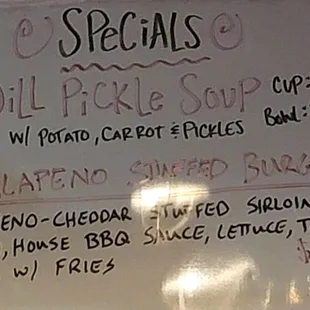 SPECIALS
DILL PICKLE SOUP CUP:
W/ POTATO, CARROT & PICKLES Bowl:
JALAPENO STUFFED BURG
ENO-CHEDDAR STUFFED SIRLOIN
, HOUSE BBQ SAUCE, LETTUCE, T
W/ FRIES